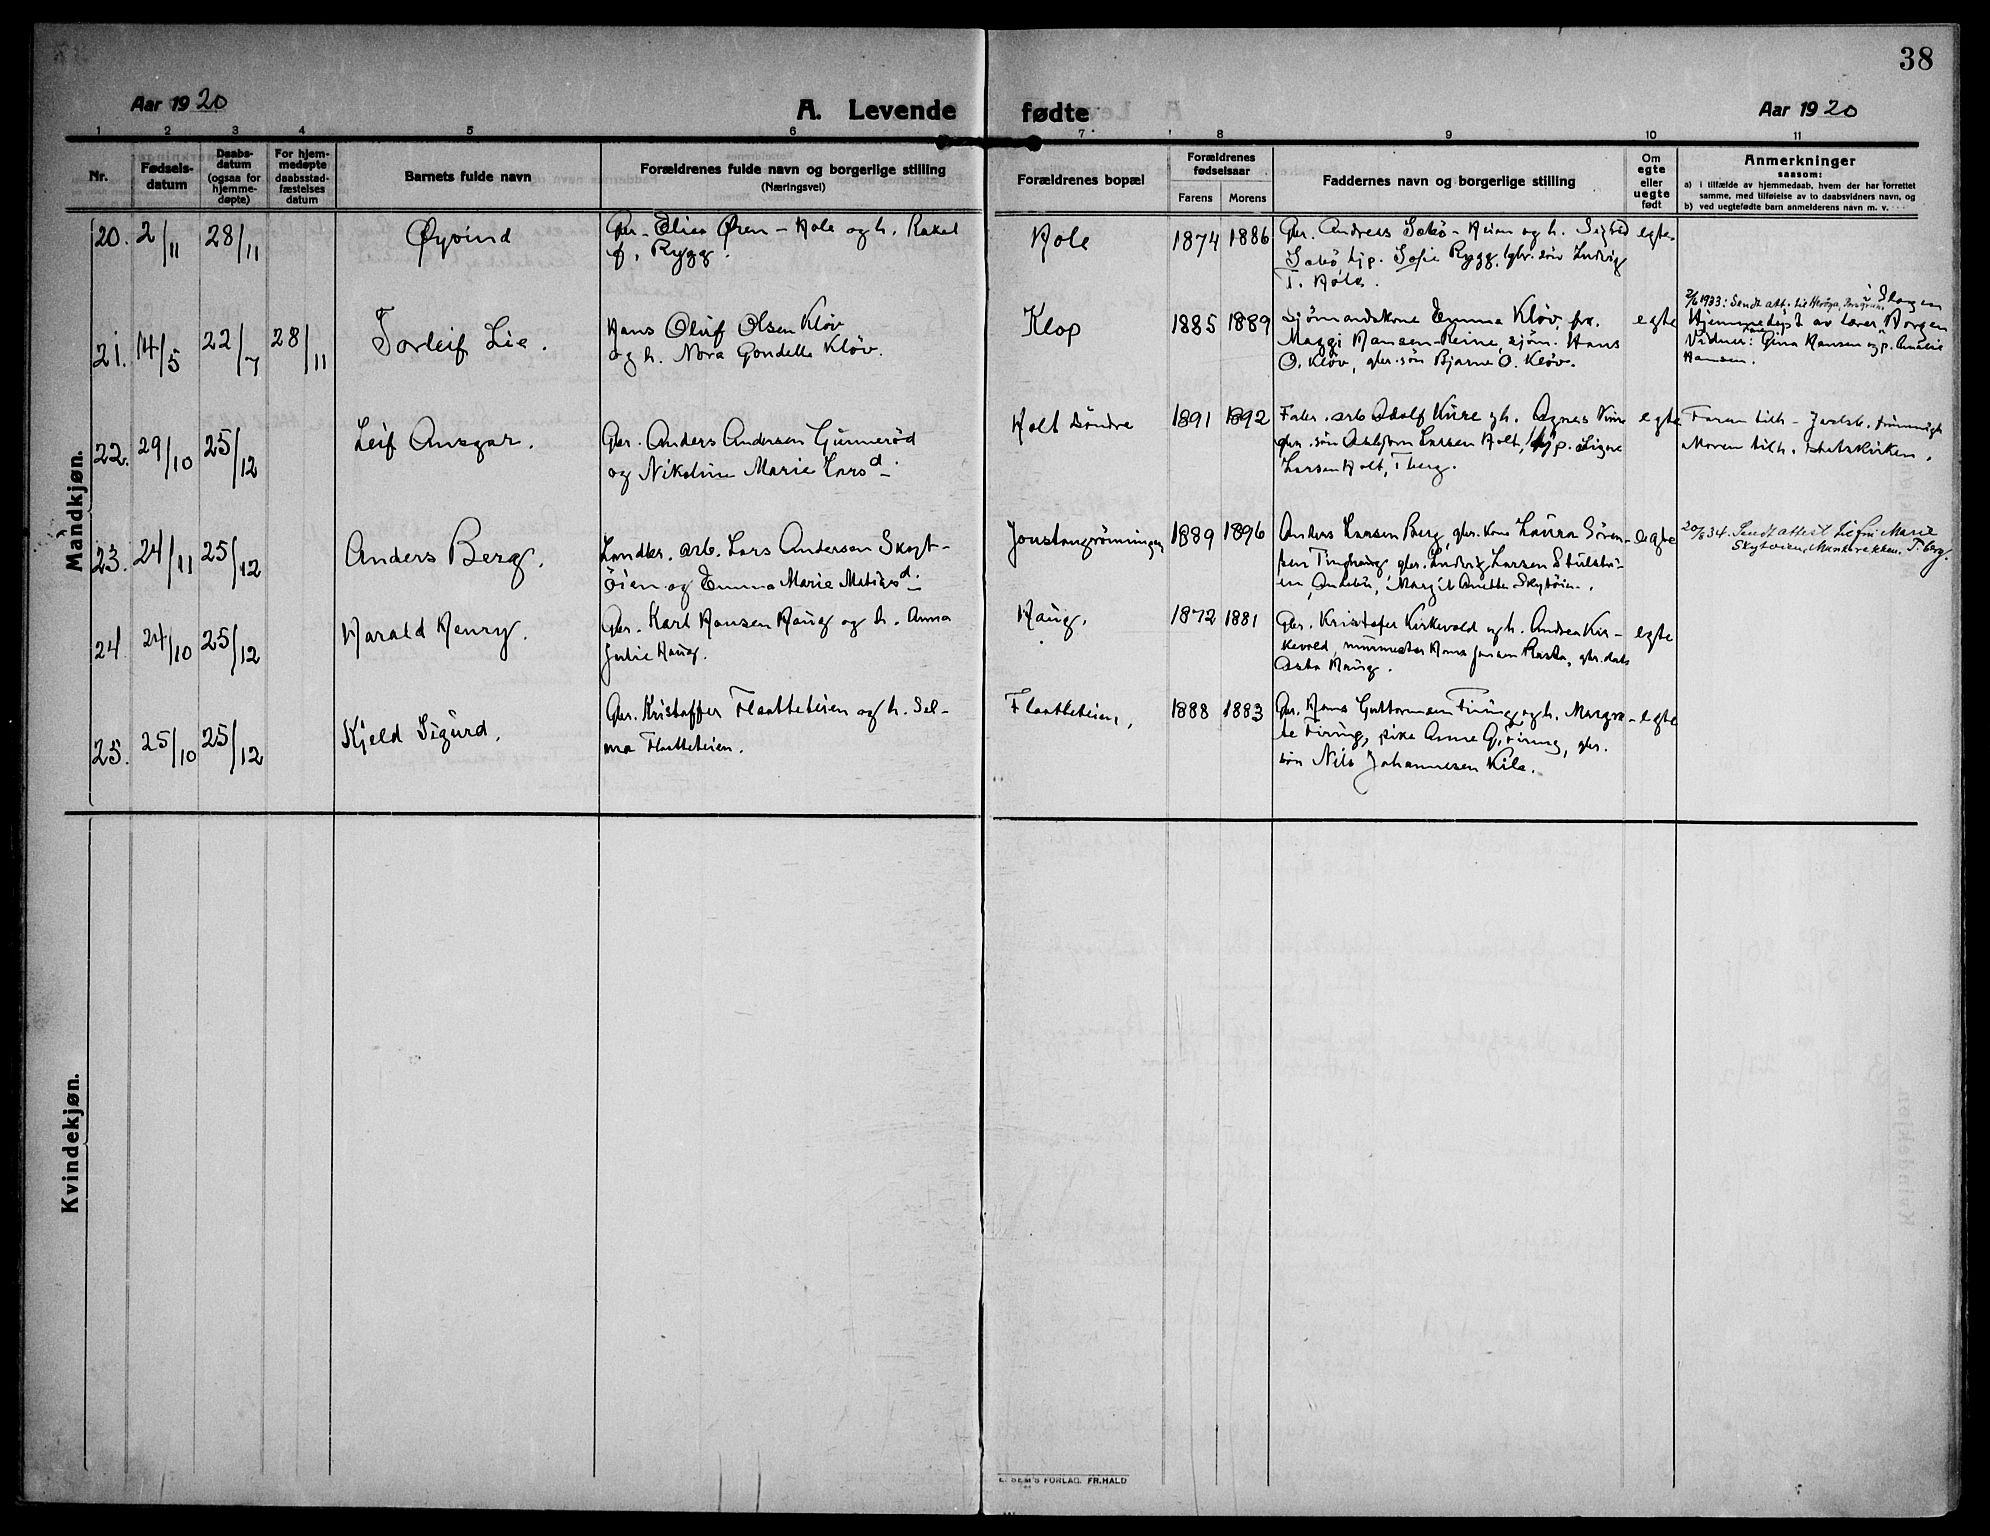 38
Aar 1920
A. Levende fødte
Aar 1920
1 2 3 4 5 6 7 8 9 10 11
Nr.
Fødsels-
datum
Daabs-
datum
(ogsaa for
hjemme-
døpte)
For hjem-
medøpte
daabsstad-
fæstelses
datum
Barnets fulde navn
Forældrenes fulde navn og borgerlige stilling
(Næringsvei)
Forældrenes bopæl
Forældrenes
fødselsaar
Farens Morens
Faddernes navn og borgerlige stilling
Om
egte
eller
uegte
født
Anmerkninger
saasom:
a) i tilfælde av hjemmedaab, hvem der har forrettet
samme, med tilføielse av to daabsvidners navn, og
b) ved uegtefødte barn anmelderens navn m. v.
Mandkjøn.
20. 2/11 28/11 Øyvind
Gbr. Elias Øren - Hole og h. Rakel
f. Rygg.
Hole 1874 1886
Gbr. Andreas Sakø - og h. Sigrid
Sakø, hjp. Sofie Rygg, gbr. søn Ludvig
T. Hole.
egte
21. 14/5 22/7 28/11 Torleif Lie.
Hans Oluf Olsen Kløv
og h. Nora Gondella Kløv.
Klop 1885 1889
Sjømandskone Emma Kløv, frk.
Maggi Hansen-Reine, sjøm. Hans
O. Kløv, gbr. søn Bjarne O. Kløv.
egte
1933: Sendt att. til Herøya,
Hjemmedøpt av lærer Borgen
Vidner: Gina Hansen og p. Amalie
Hansen.
22. 29/10 25/12 Leif Ansgar.
Gbr. Anders Andersen Gunnerød
og Nikoline Marie Larsd.
Holt søndre 1891 1892
Fabr. arb. Adolf Kure og h. Agnes Kure
gbr. søn Asbjørn Larsen Holt, hjp. Signe
Larsen Holt, Tberg.
egte
Faren tilh. Jarlsb. frimenigh.
Moren tilh. statskirken.
23. 24/11 25/12 Anders Berg.
Landbr. arb. Lars Andersen Skyt-
øien og Emma Marie Matisd.
Jonstangrønningen 1889 1896
Anders Larsen Berg, gbr. kone Laura Søren-
sen Tinghaug gbr. Ludvig Larsen
Andebu, Margit Anette Skytøien.
egte
20/8 34. Sendt attest til fru Marie
Skytøien, T.berg.
24 24/10 25/12 Harald Henry.
Gbr. Karl Hansen Haug og h. Anna
Julie Haug.
Haug. 1872 1881
Gbr. Kristofer Kirkevold og h. Andrea Kir-
kevold, murmester Hans Jensen Rasta, gbr. dat.
Asta Haug.
egte
25. 25/10 25/12 Kjeld Sigurd.
Gbr. Kristoffer Flaatteteien og h. Sel-
ma Flaatteteien.
Flaatteteien, 1888 1883
Gbr. Hans Guttormsen Firing og h. Margre-
te Firing, pike Anne G. Firing, gbr.
søn Nils Johannesen Kile.
egte
Kvindekjøn.
E. SEM'S FORLAG. FR.HALD